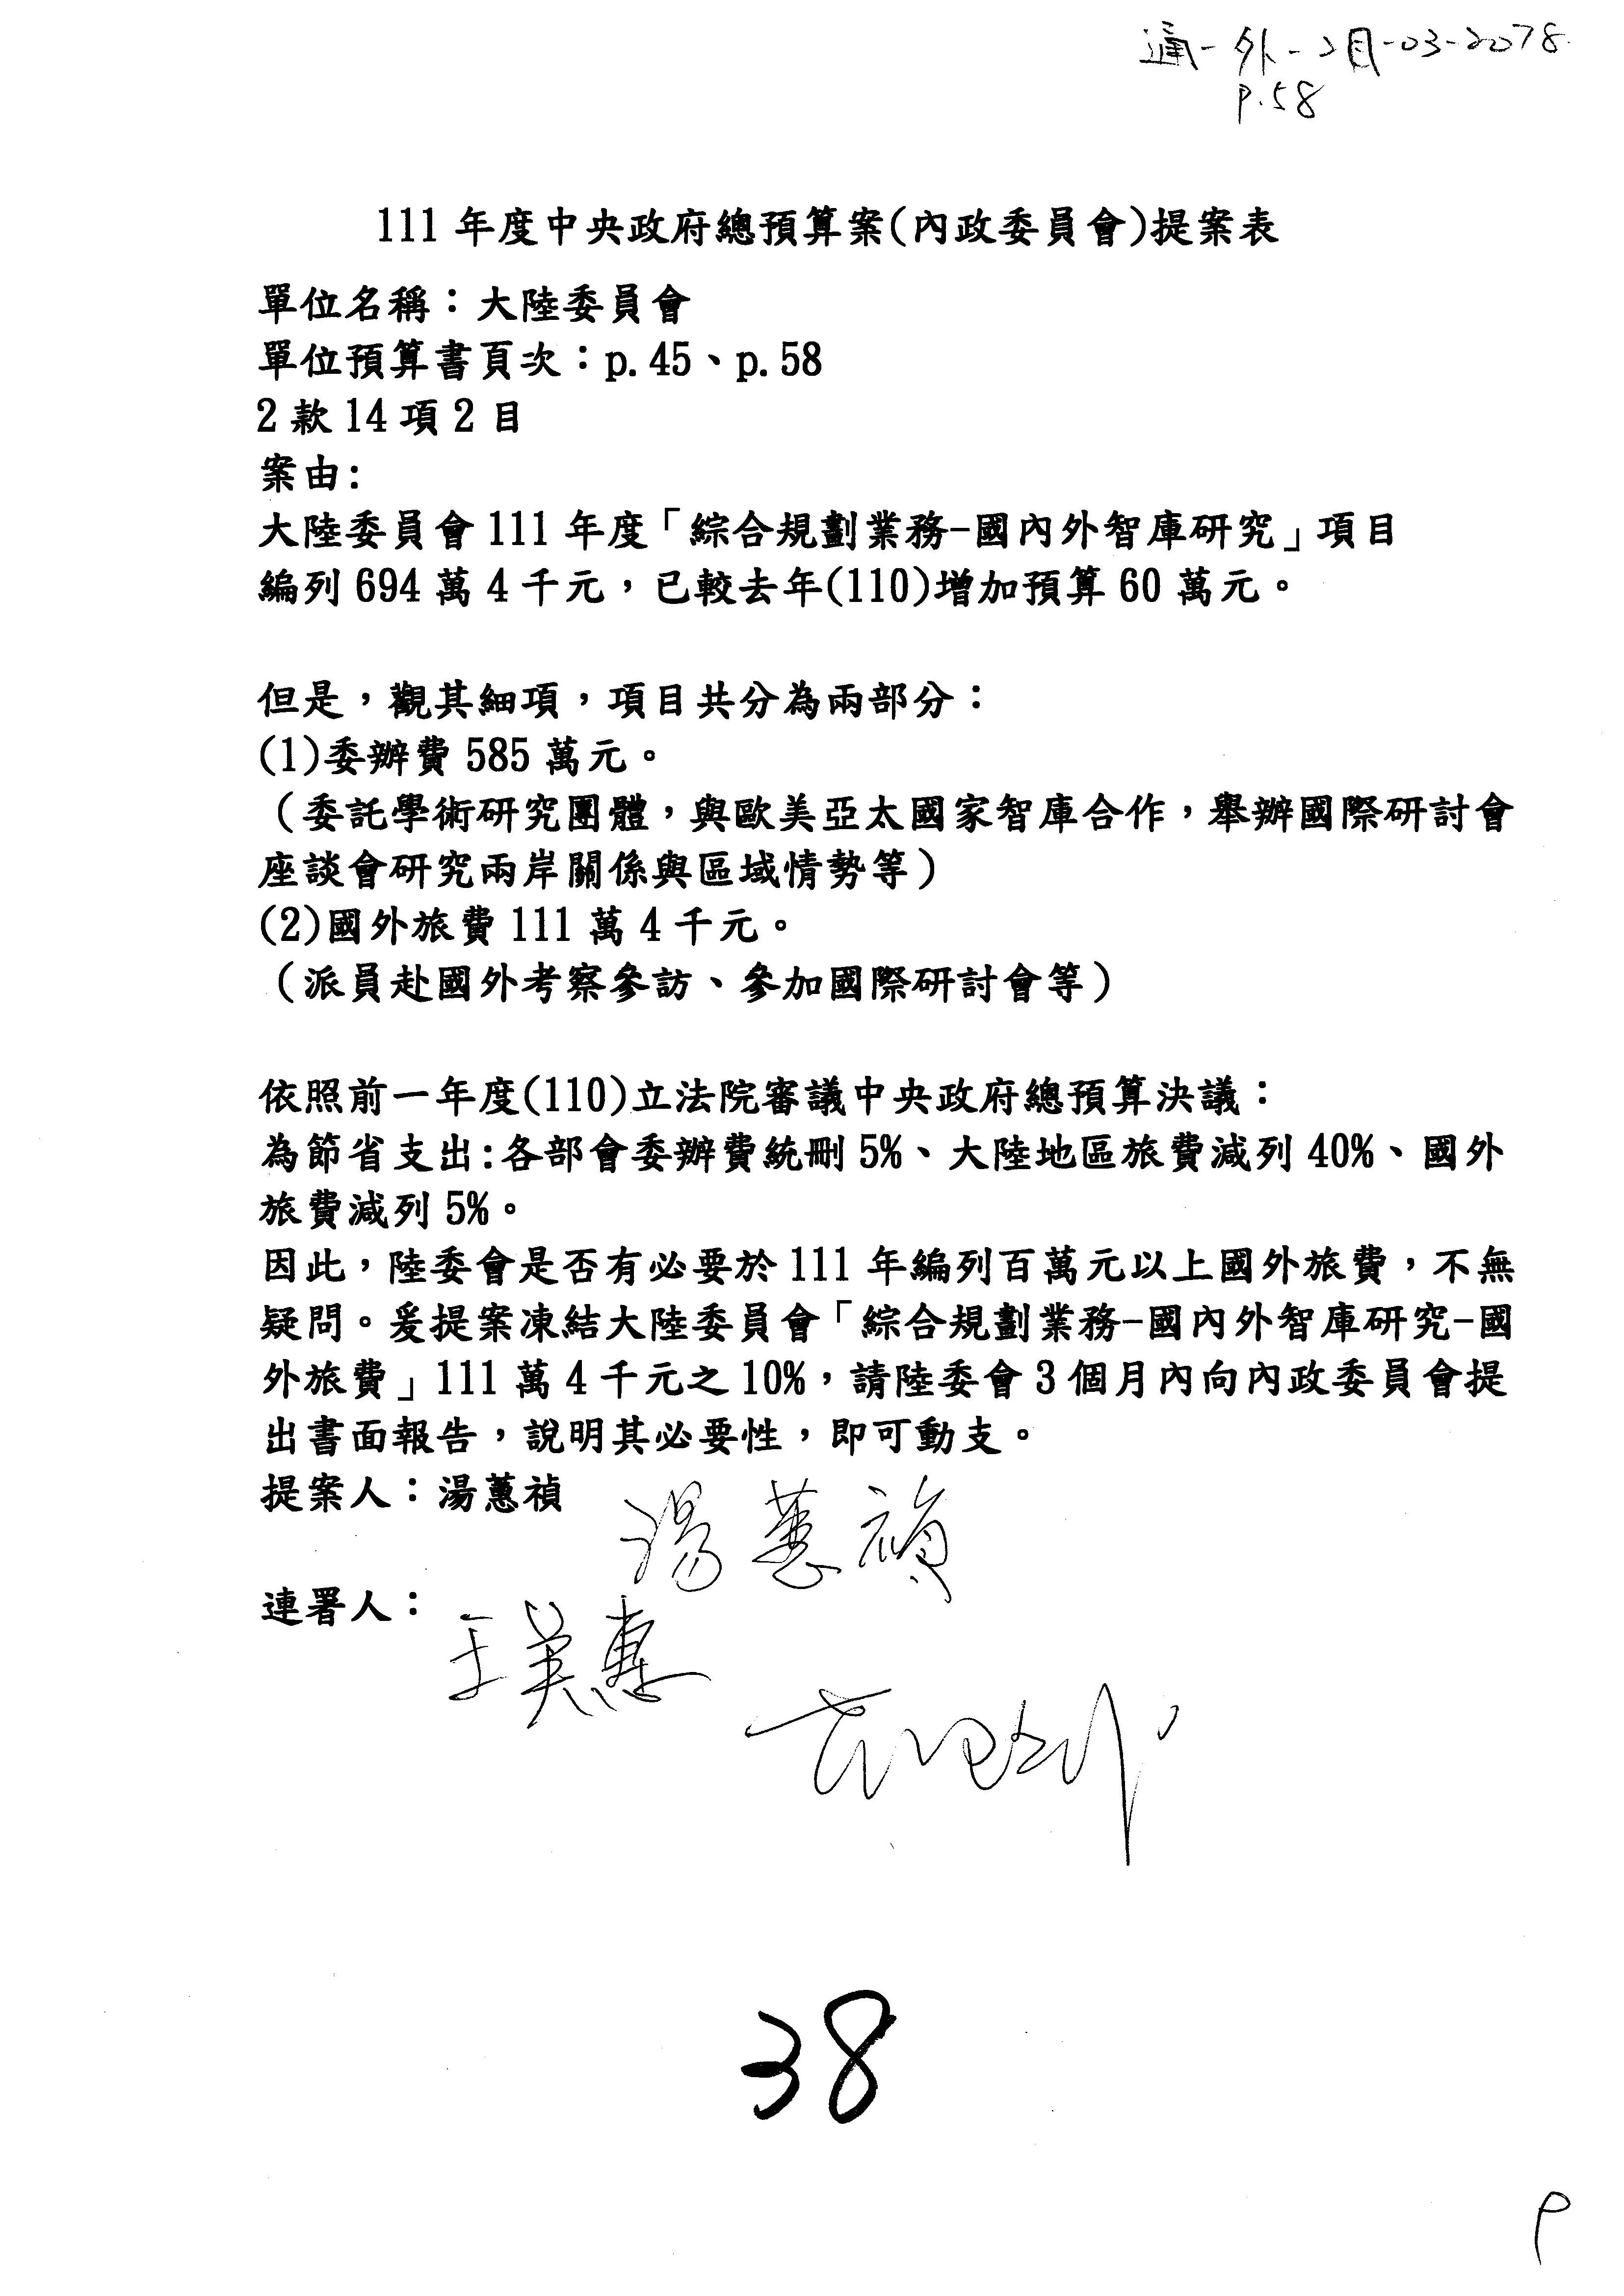 通-外-2目-03-2078
P.58
111 年度中央政府總預算案(內政委員會)提案表
單位名稱：大陸委員會
單位預算書頁次：p.45、p.58
2 款 14 項 2 目
案由:
大陸委員會 111 年度「綜合規劃業務-國內外智庫研究」項目
編列 694 萬 4 千元，已較去年(110)增加預算 60 萬元。
但是，觀其細項，項目共分為兩部分：
(1)委辦費 585 萬元。
（委託學術研究團體，與歐美亞太國家智庫合作，舉辦國際研討會
座談會研究兩岸關係與區域情勢等）
(2)國外旅費 111 萬 4 千元。
（派員赴國外考察參訪、參加國際研討會等）
依照前一年度(110)立法院審議中央政府總預算決議：
為節省支出:各部會委辦費統刪 5%、大陸地區旅費減列 40%、國外
旅費減列 5%。
因此，陸委會是否有必要於 111 年編列百萬元以上國外旅費，不無
疑問。爰提案凍結大陸委員會「綜合規劃業務-國內外智庫研究-國
外旅費」111 萬 4 千元之 10%，請陸委會 3 個月內向內政委員會提
出書面報告，說明其必要性，即可動支。
提案人：湯蕙禎 湯蕙禎
連署人：
王美惠
38
P